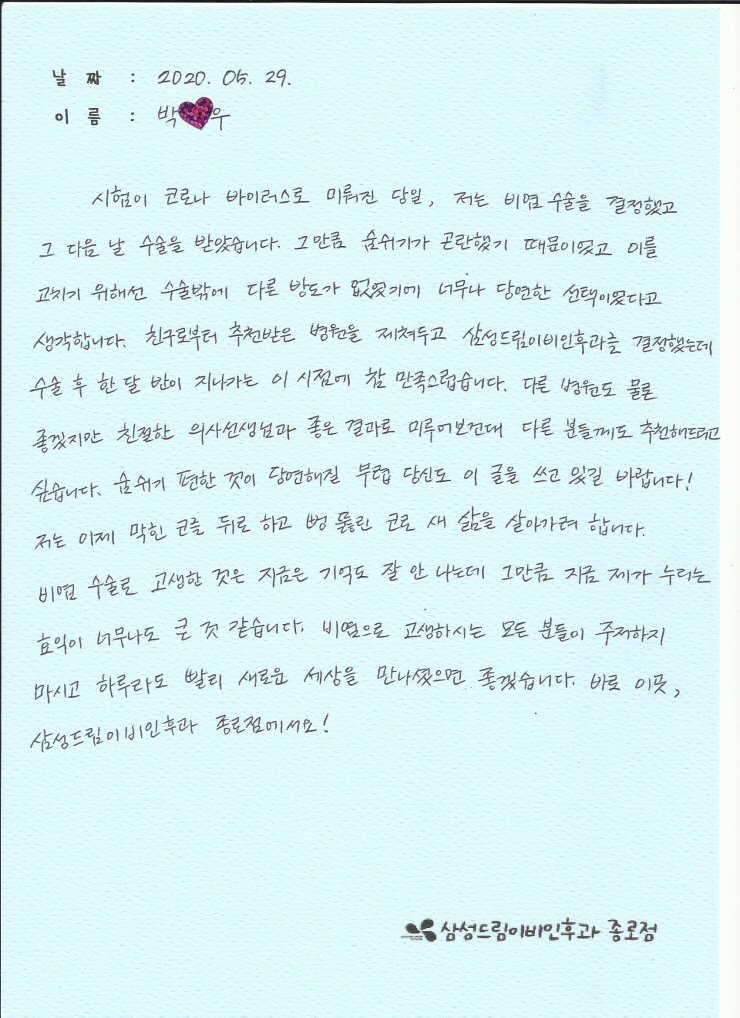 날 짜 : 2020. 05. 29.
이 름 : 박 우
시험이 코로나 바이러스로 미뤄진 당일, 저는 비염 수술을 결정했고
그 다음 날 수술을 받았습니다. 그만큼 숨쉬기가 곤란했기 때문이었고 이를
고치기 위해선 수술밖에 다른 방도가 없었기에 너무나 당연한 선택이었다고
생각합니다. 친구로부터 추천받은 병원을 제쳐두고 삼성드림이비인후과를 결정했는데
수술 후 한 달 반이 지나가는 이 시점에 참 만족스럽습니다. 다른 병원도 물론
좋겠지만 친절한 의사선생님과 좋은 결과로 미루어보건대 다른 분들께도 추천해드리고
싶습니다. 숨쉬기 편한 것이 당연해질 무렵 당신도 이 글을 쓰고 있길 바랍니다!
저는 이제 막힌 코를 뒤로 하고 뻥 뚫린 코로 새 삶을 살아가려 합니다.
비염 수술로 고생한 것은 지금은 기억도 잘 안 나는데 그만큼 지금 제가 누리는
효익이 너무나도 큰 것 같습니다. 비염으로 고생하시는 모든 분들이 주저하지
마시고 하루라도 빨리 새로운 세상을 만나셨으면 좋겠습니다. 바로 이곳,
삼성드림이비인후과 종로점에서요!
삼성드림이비인후과 종로점